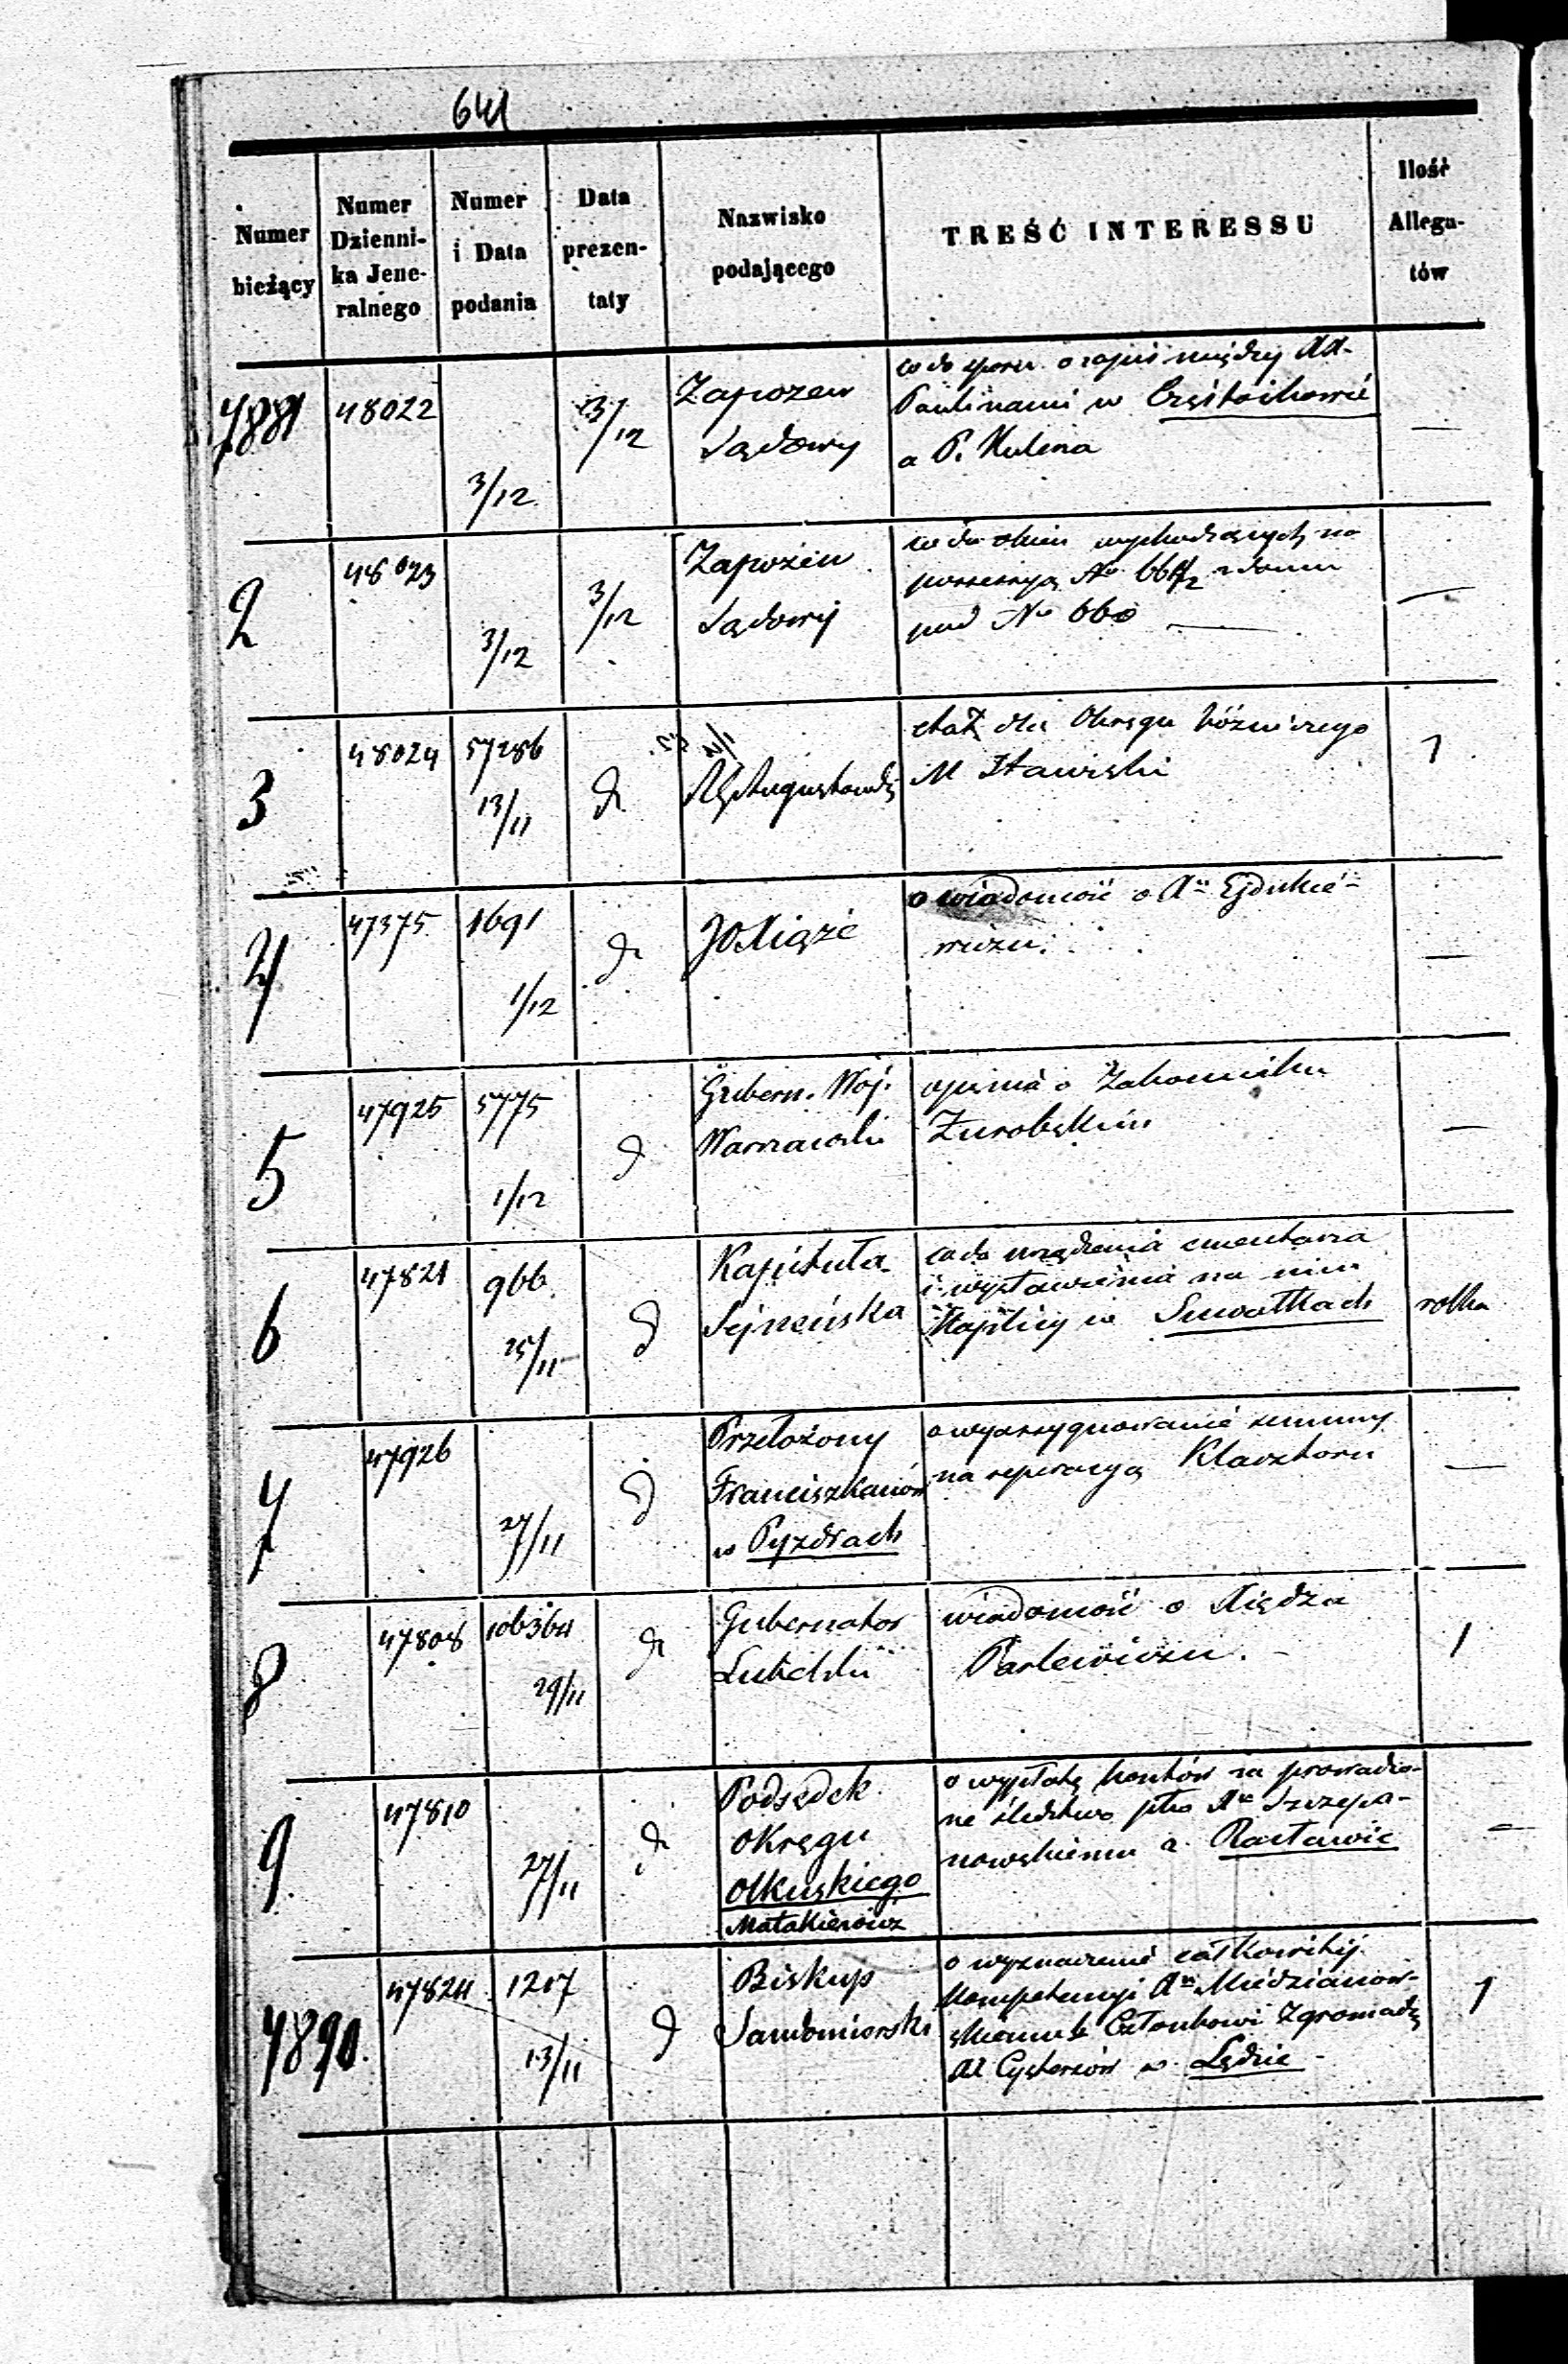 641
Numer bieżący
Numer Dzienni-ka Jene-ralnego
Numer i Data podania
Data prezen-taty
Nazwisko podającego
TREŚĆ INTERESSU
Ilość Allega-tów
4881 48022 3/12 3/12
Zapozew
Sądowy
co do sporu o zapis między XX.
Paulinami w Częstochowie
a P. Kulina
—
2 48023 3/12 3/12
Zapozew
Sądowy
co do okien wychodzących na
possessyą No 661/2 z domu
pod No 660 —
—
3 48024 57286 13/11 d
etat dla Okręgu Bóźniczego
M Stawiski
1
4 47375 1691 1/12 d
JO Xiąże
o wiadomość o Xu Ejdukie-
wiczu.
—
5 47925 5775 1/12 d
Gubern. Woj.
Warszawski
opinia o Zakonniku
—
6 47821 966 25/11 d
Kapituła
Sejneńska
co do urządzenia cmentarza
i wystawienia na nim
Kaplicy w Suwałkach
rolka
7 47926 27/11 d
Przełożony
Franciszkanów
w Pyzdrach
o wyassygnowanie summy
na reperacyą Klasztoru
—
8 47808 106364 29/11 d
Gubernator
Lubelski
wiadomość o Xiędzu
Parlewiczu. -
1
9 47810 27/11 d
Podsędek
Okręgu
Olkuskiego
Małakiewicz
o wypłatę kosztów za prowadzo-
ne śledztwo pko Xu Szczepa-
nowskiemu z Racławic
—
4890. 47824 1217 13/11 d
Biskup
Sandomierski
o wyznaczenie całkowitej
kompetencyi Xu Miedzianow-
skiemu Członkowi Zgromadz
XX Cystersów w Lędzie -
1